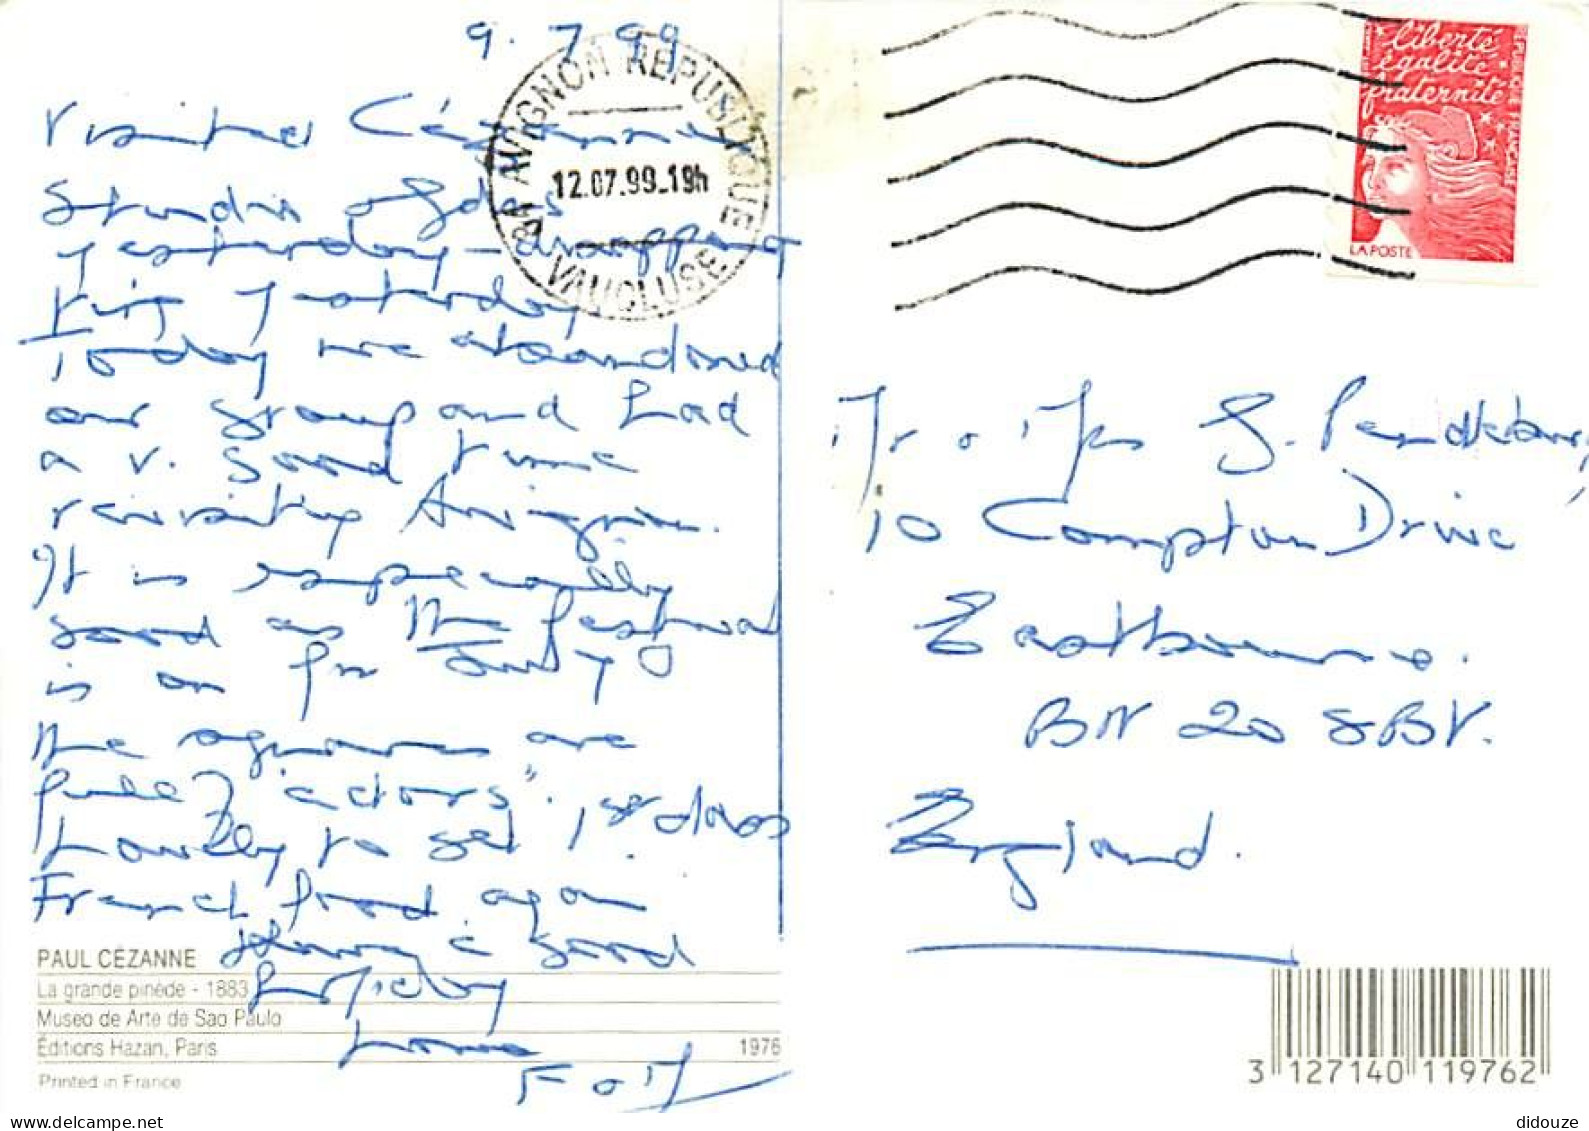 9.7.99
Visited Cézanne
Studio
yesterday - disappoint
ing yesterday
Today we abandoned
our group and had
a v. good time
revisiting Avignon.
It is especially
good as the festival
is on for July
The squares are
full of "actors".
Lovely to get 1st class
French food again
Having a good
holiday
Love
F o M
PAUL CÉZANNE
La grande pinède - 1883
Museo de Arte de Sao Paulo
Éditions Hazan, Paris 1976
Printed in France
84 AVIGNON REPUBLIQUE
12.07.99-19h
VAUCLUSE
liberté
égalité
fraternité
REPUBLIQUE FRANÇAISE
LA POSTE
Mr & Mrs G. Pendlebury
10 Compton Drive
Eastbourne.
BN 20 8BV.
England.
3 127140 119762
didouze